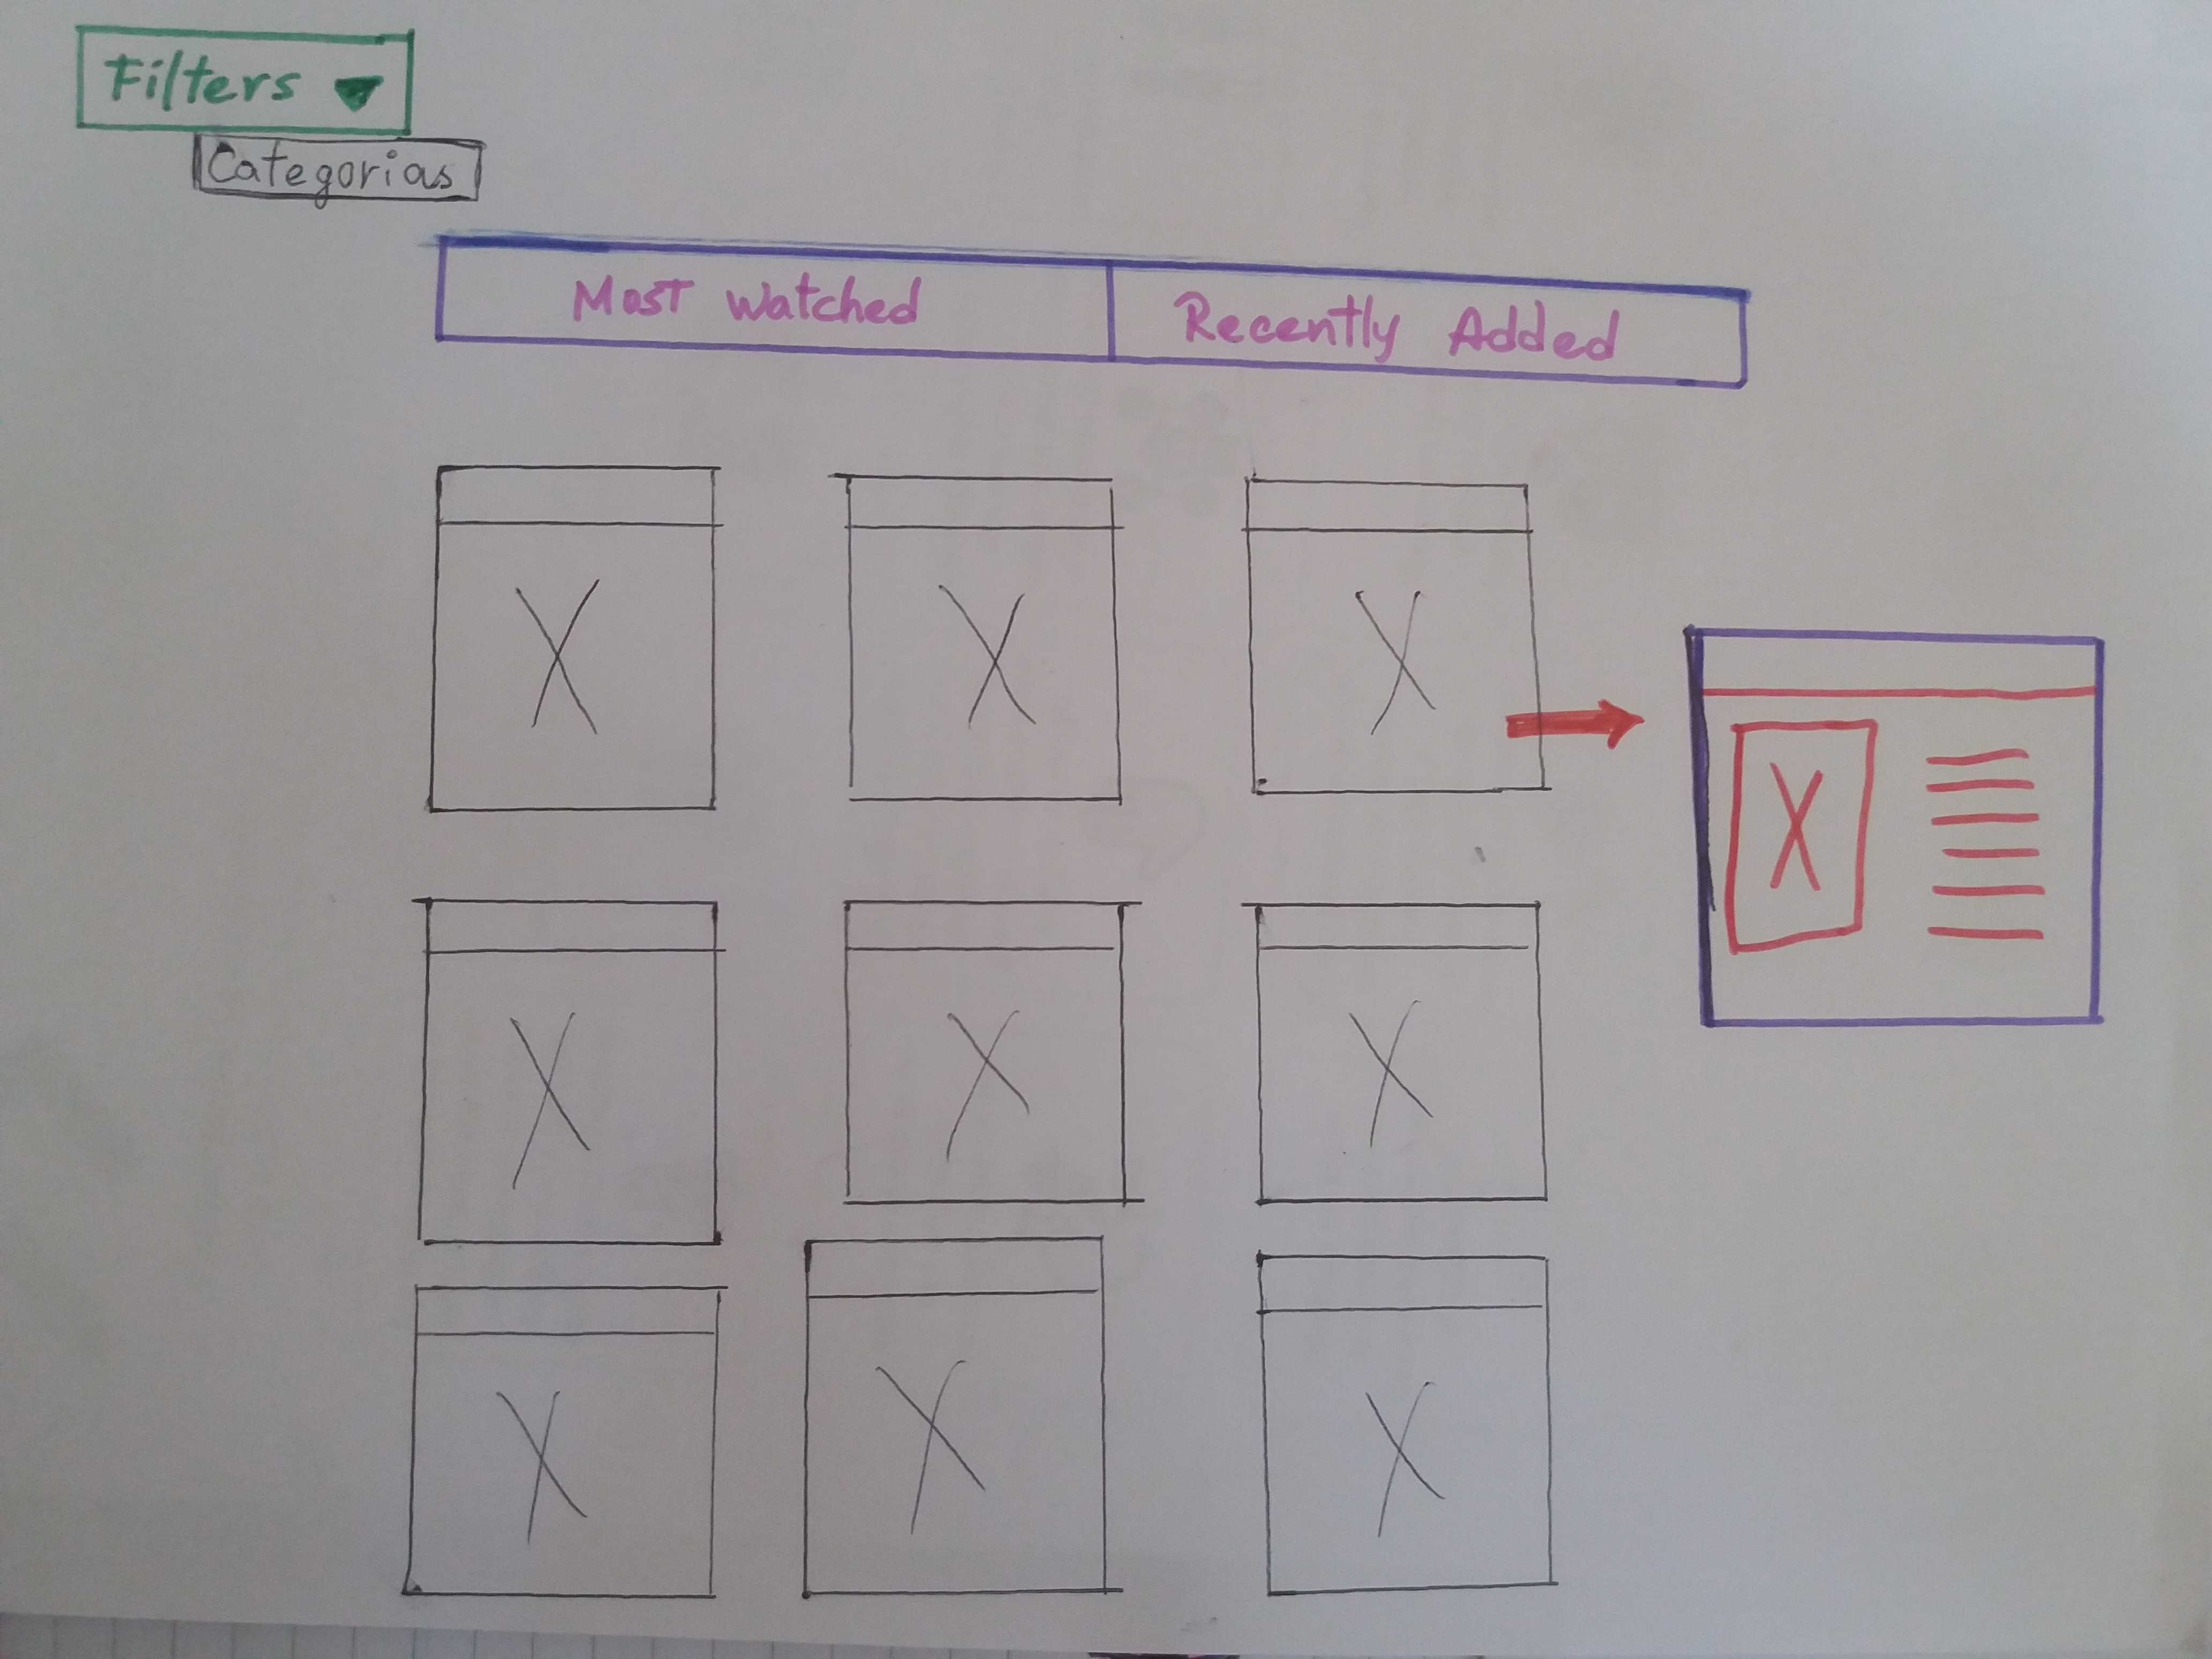 Filters
Categorias
Most Watched
Recently Added
X X X
X
X X X
X X X